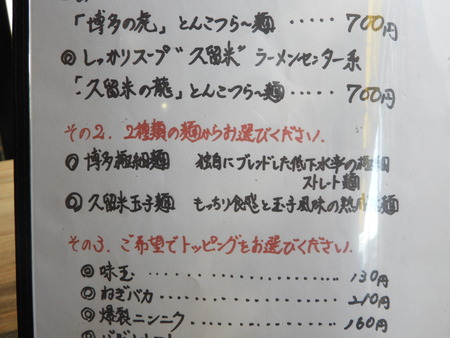 「博多の虎」とんこつら～麺 ····· 700円
◎ しっかりスープ"久留米" ラーメンセンター系
「久留米の龍」とんこつら～麺 ····· 700円
その2. 2種類の麺からお選びください.
◎ 博多極細麺 独自にブレンドした低下水率の極細
ストレート麺
◎ 久留米玉子麺 もっちり食感と玉子風味の熟成麺
その3. ご希望でトッピングをお選びください.
◎ 味玉 ················ 130円
◎ ねぎバカ ·············· 210円
◎ 爆製ニンニク ············ 160円